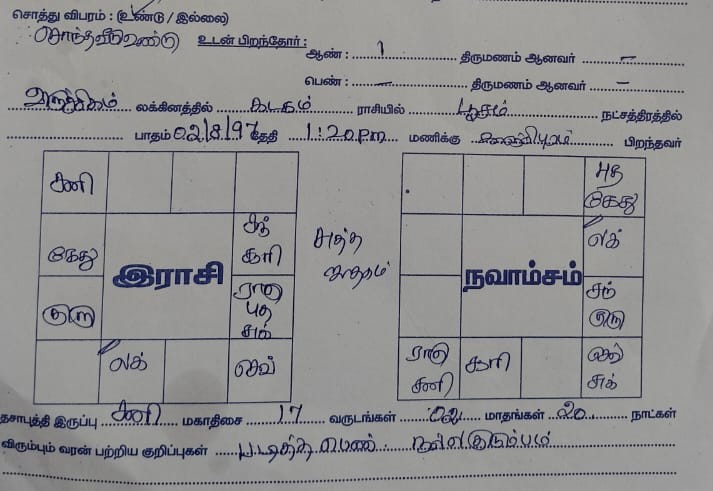 சொத்து விபரம் : (உண்டு / இல்லை)
சொந்தவீடு உண்டு உடன் பிறந்தோர் :
ஆண் : 1 திருமணம் ஆனவர் –
பெண் : – திருமணம் ஆனவர் –
விருச்சிகம் லக்கினத்தில் கடகம் ராசியில் பூசம் நட்சத்திரத்தில்
பாதம் 02/8/97 தேதி 1:20 P.m மணிக்கு காஞ்சிபுரம் பிறந்தவர்
சனி
கேது
குரு
லக்
செவ்
ராகு
புத
சுக்
இராசி
சுத்த
ஜாதகம்
புத
கேது
லக்
சந்
குரு
ராகு
சனி
சூரி
செவ்
சுக்
நவாம்சம்
தசாபுத்தி இருப்பு சனி மகாதிசை 17 வருடங்கள் 02 மாதங்கள் 20 நாட்கள்
விரும்பும் வரன் பற்றிய குறிப்புகள் படித்த பெண் நல்ல குடும்பம்